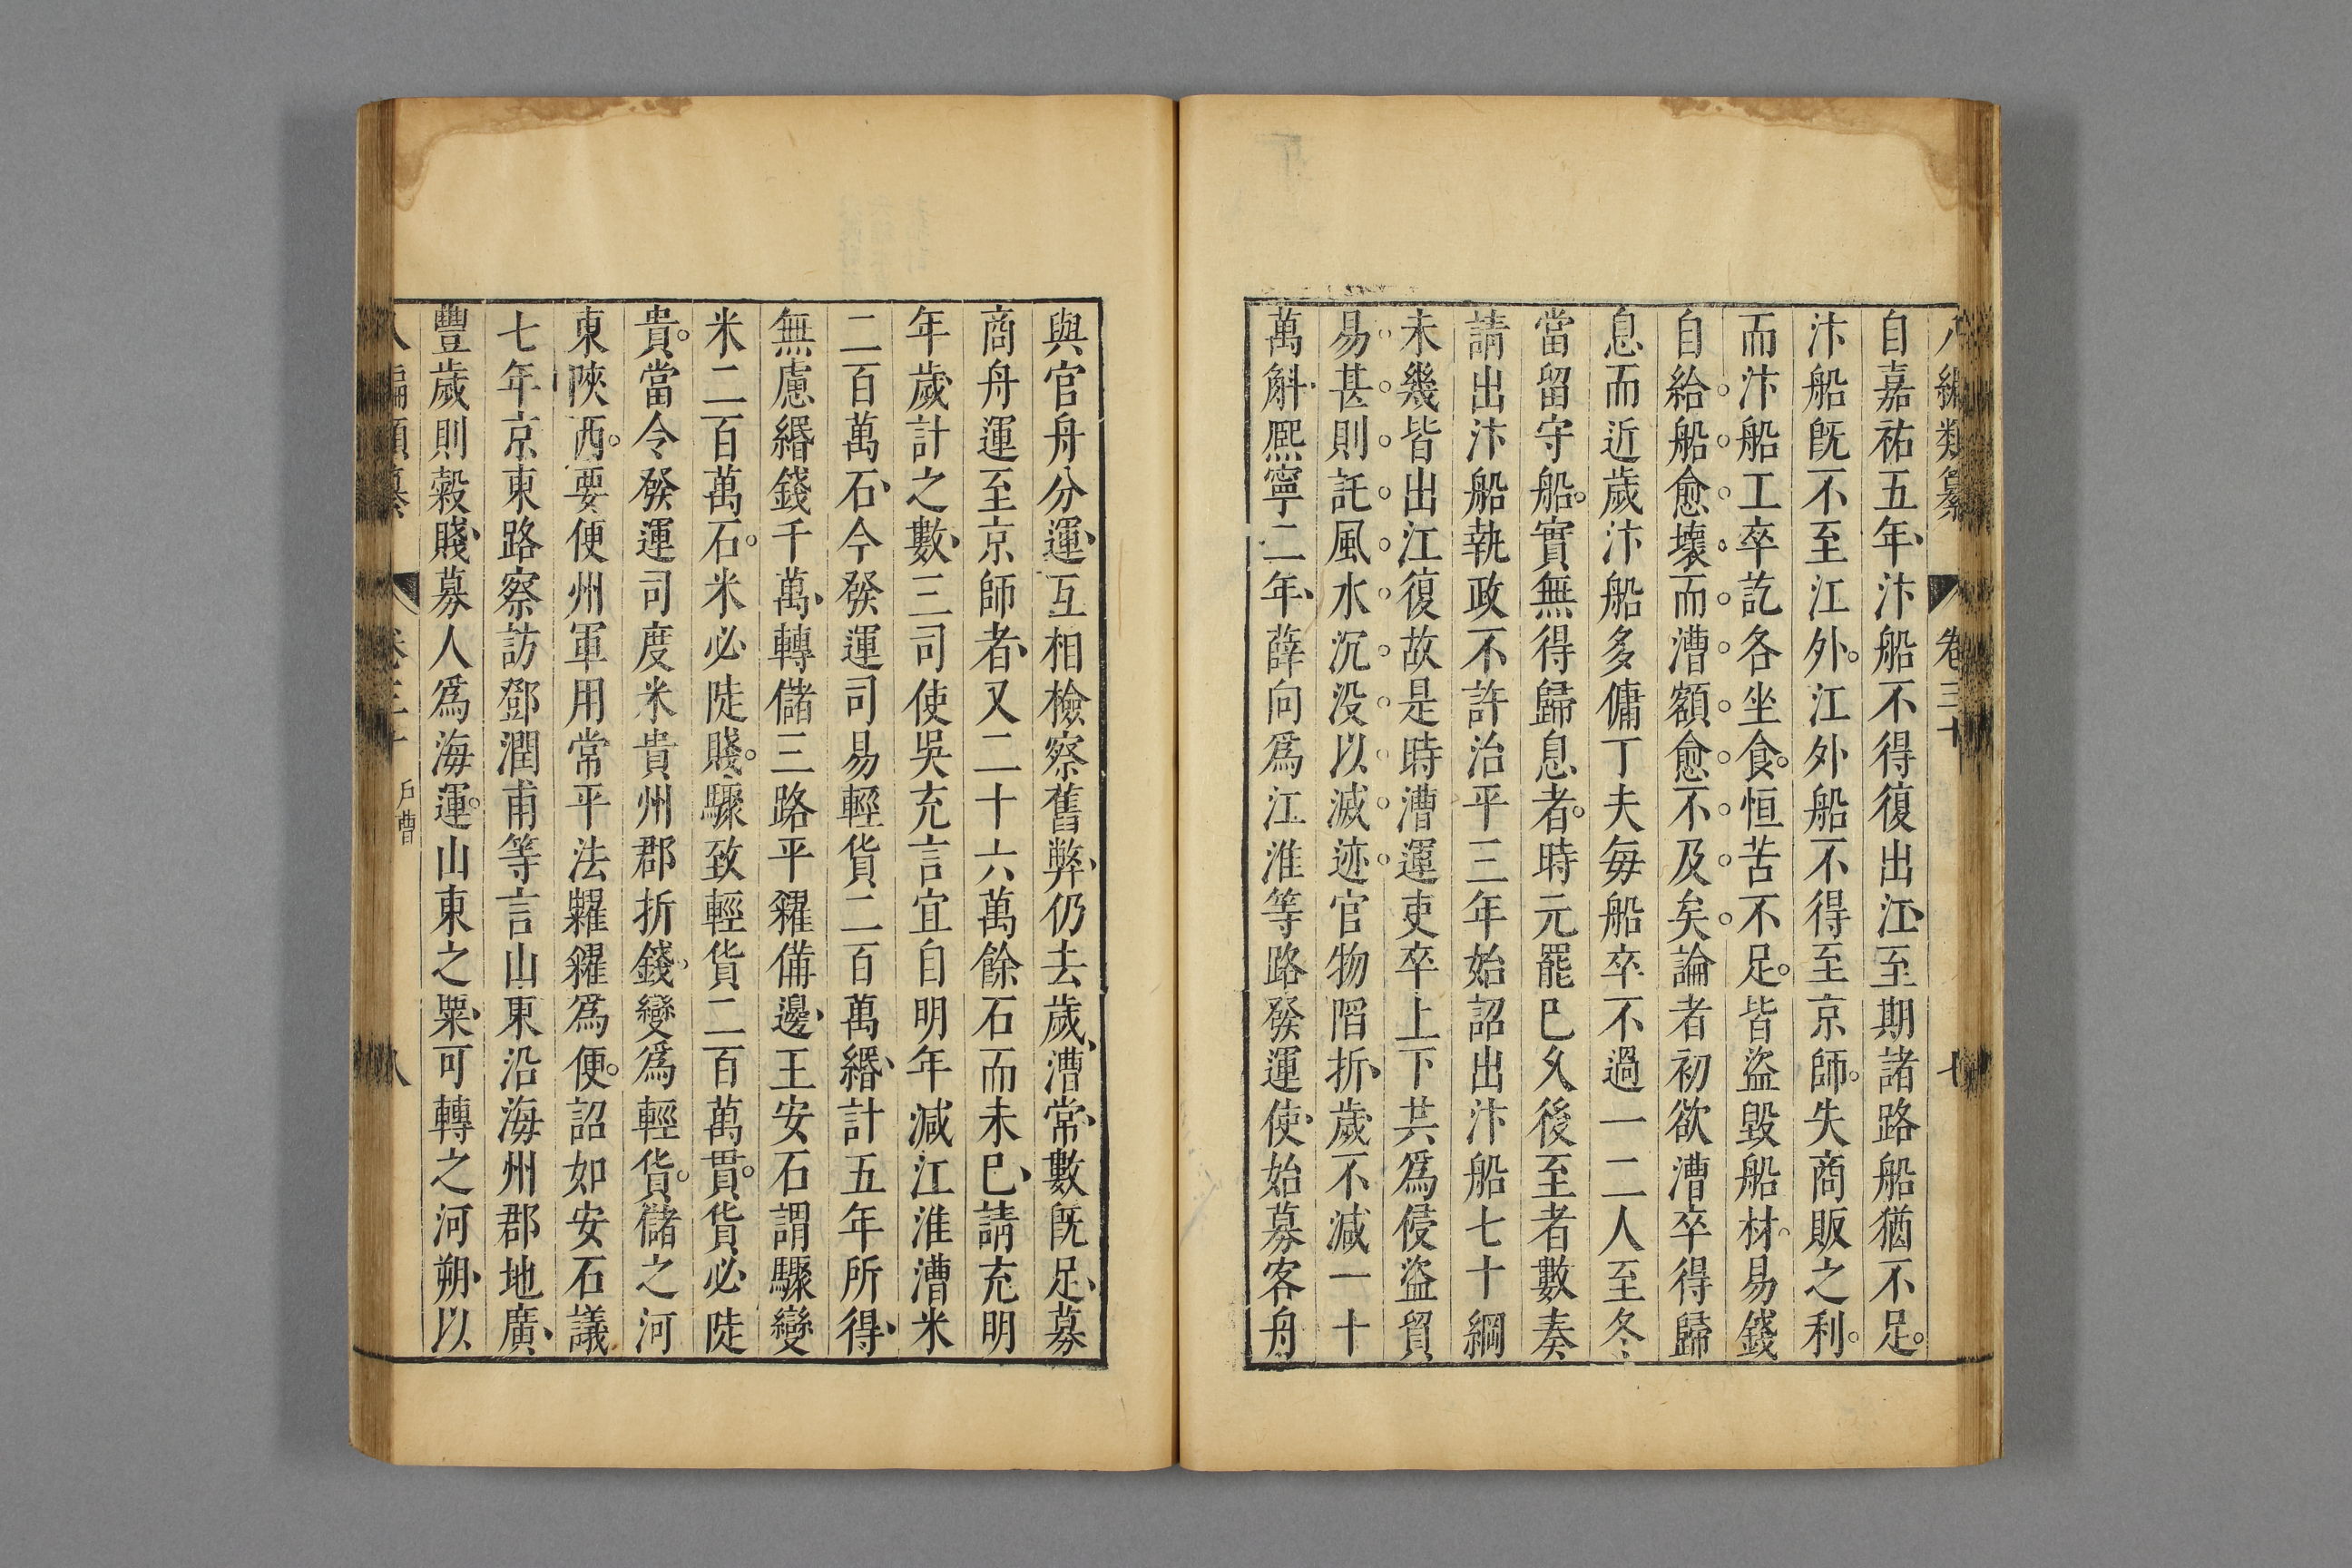 八編類纂 卷三十 七
自嘉祐五年汴船不得復出江至期諸路船猶不足
汴船旣不至江外江外船不得至京師失商販之利
而汴船工卒訖各坐食恒苦不足皆盜毀船材易錢
自給船愈壞而漕額愈不及矣論者初欲漕卒得歸
息而近歲汴船多傭丁夫每船卒不過一二人至冬
當留守船實無得歸息者時元罷巳久後至者數奏
請出汴船執政不許治平三年始詔出汴船七十綱
未幾皆出江復故是時漕運吏卒上下共爲侵盜貿
易甚則託風水沉没以滅迹官物陷折歲不減一十
萬斛熙寧二年薛向爲江淮等路發運使始募客舟
與官舟分運互相檢察舊弊仍去歲漕常數旣足募
商舟運至京師者又二十六萬餘石而未巳請充明
年歲計之數三司使吳充言宜自明年減江淮漕米
二百萬石今發運司易輕貨二百萬緡計五年所得
無慮緡錢千萬轉儲三路平糴備邊王安石謂驟變
米二百萬石米必陡賤驟致輕貨二百萬貫貨必陡
貴當令發運司度米貴州郡折錢變爲輕貨儲之河
東陝西要便州軍用常平法糶糴爲便詔如安石議
七年京東路察訪鄧潤甫等言山東沿海州郡地廣
豐歲則穀賤募人爲海運山東之粟可轉之河朔以
八編類纂 卷三十 戶曹 八